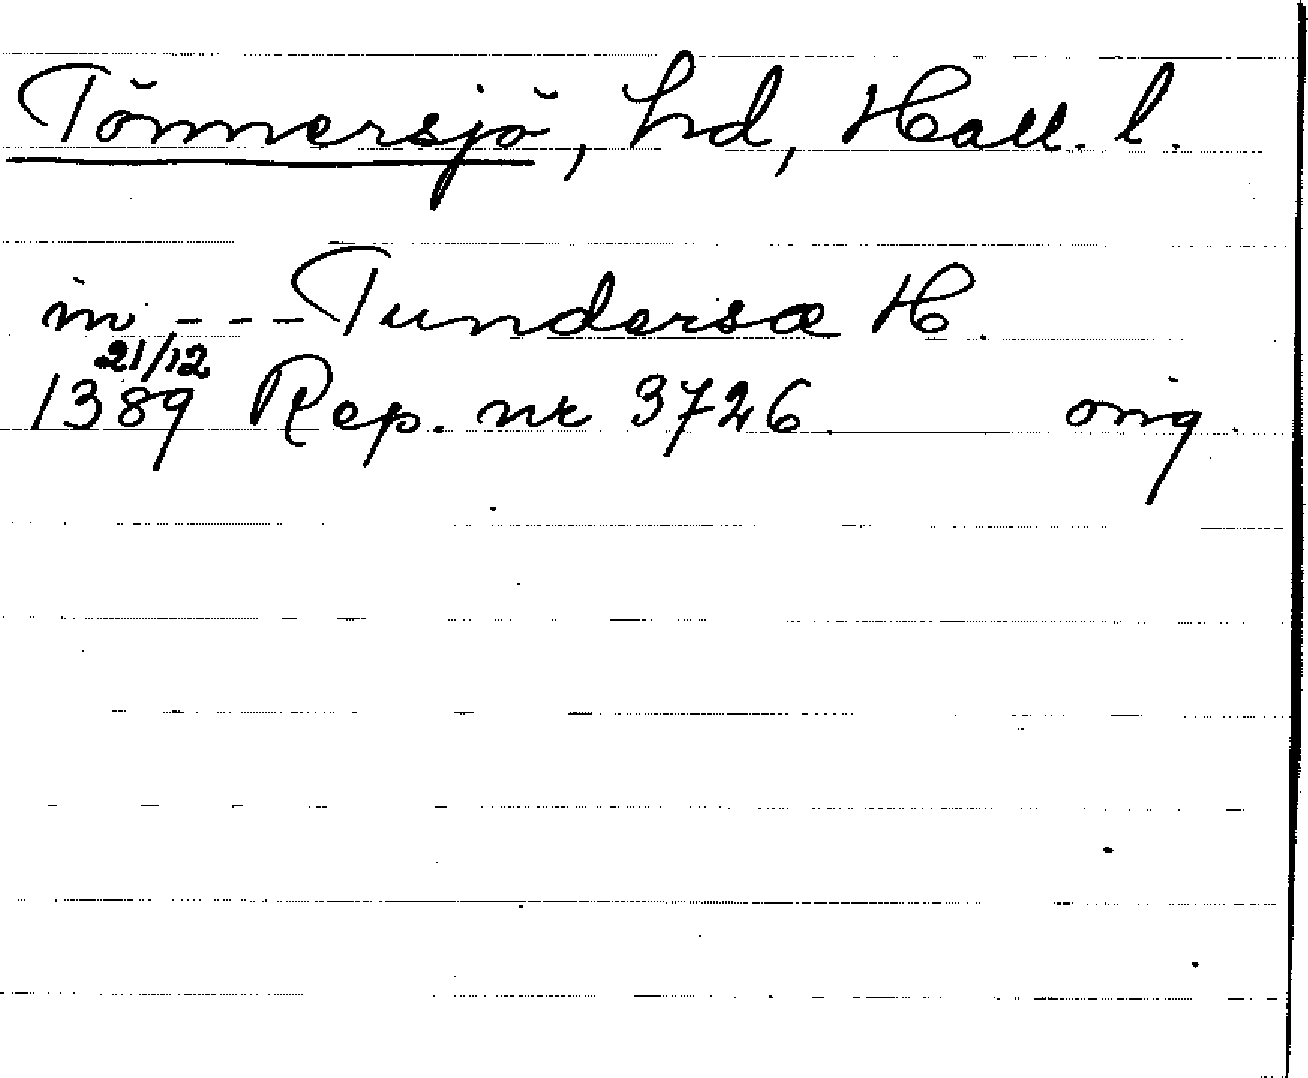 Tönnersjö, hd, Hall. l.
in - - - Tundersæ H.
21/12
1389 Rep. nr 3726. orig.